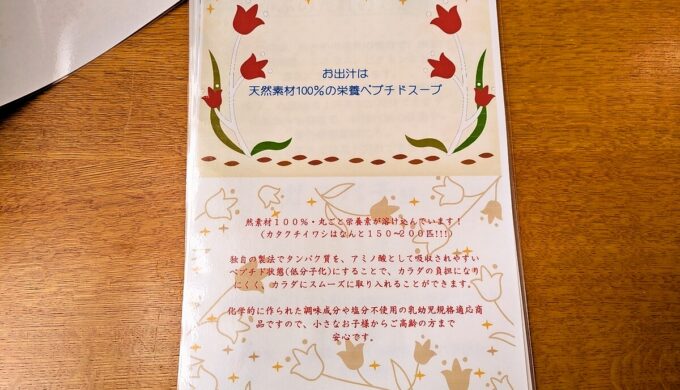 お出汁は
天然素材100%の栄養ペプチドスープ
然素材１００％・丸ごと栄養素が溶け込んでいます！
（カタクチイワシはなんと１５０～２００匹!!!）
独自の製法でタンパク質を、アミノ酸として吸収されやすい
ペプチド状態(低分子化)にすることで、カラダの負担になり
にくく、カラダにスムーズに取り入れることができます。
化学的に作られた調味成分や塩分不使用の乳幼児規格適応商
品ですので、小さなお子様からご高齢の方まで
安心です。